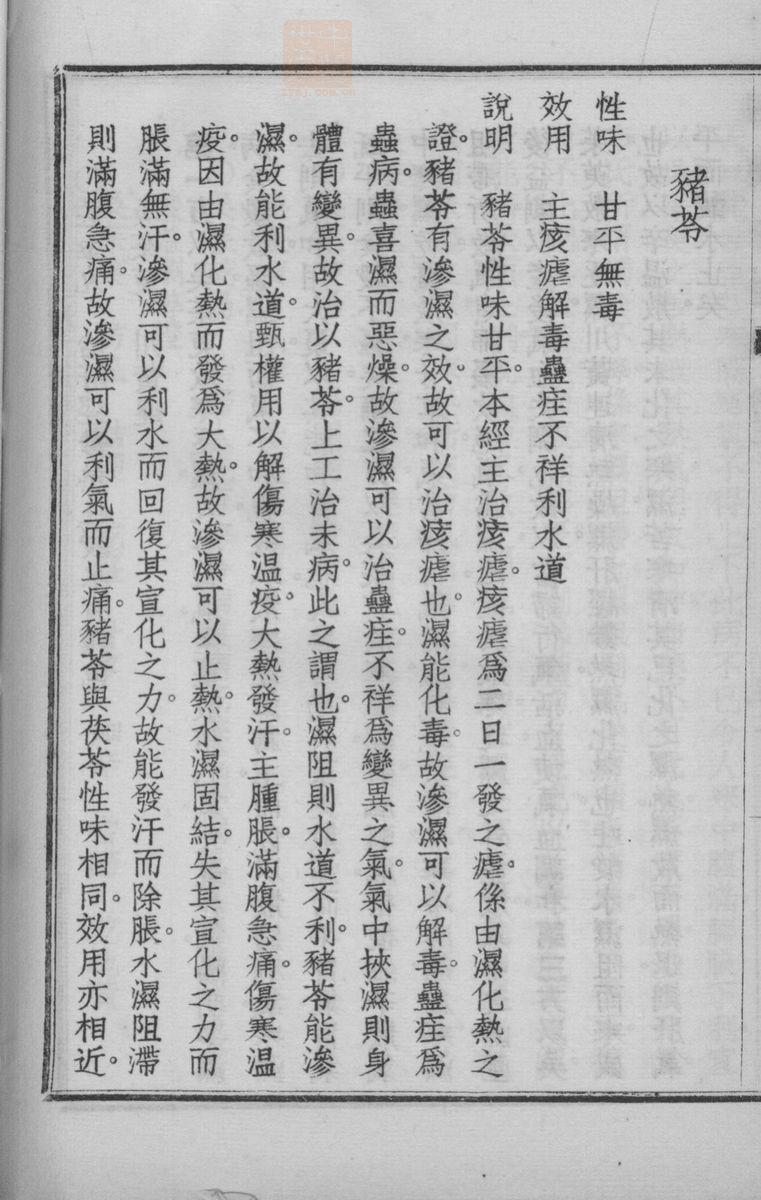 豬苓
性味　甘平無毒
效用　主痎瘧解毒蠱疰不祥利水道
說明　豬苓性味甘平。本經主治痎瘧。痎瘧爲二日一發之瘧。係由濕化熱之
證。豬苓有滲濕之效。故可以治痎瘧也。濕能化毒。故滲濕可以解毒。蠱疰爲
蟲病。蟲喜濕而惡燥。故滲濕可以治蠱疰。不祥爲變異之氣。氣中挾濕則身
體有變異。故治以豬苓。上工治未病。此之謂也。濕阻則水道不利。豬苓能滲
濕。故能利水道。甄權用以解傷寒溫疫。大熱發汗。主腫脹。滿腹急痛。傷寒溫
疫。因由濕化熱而發爲大熱。故滲濕可以止熱。水濕固結。失其宣化之力而
脹滿無汗。滲濕可以利水而回復其宣化之力。故能發汗而除脹。水濕阻滯
則滿腹急痛。故滲濕可以利氣而止痛。豬苓與茯苓性味相同。效用亦相近。